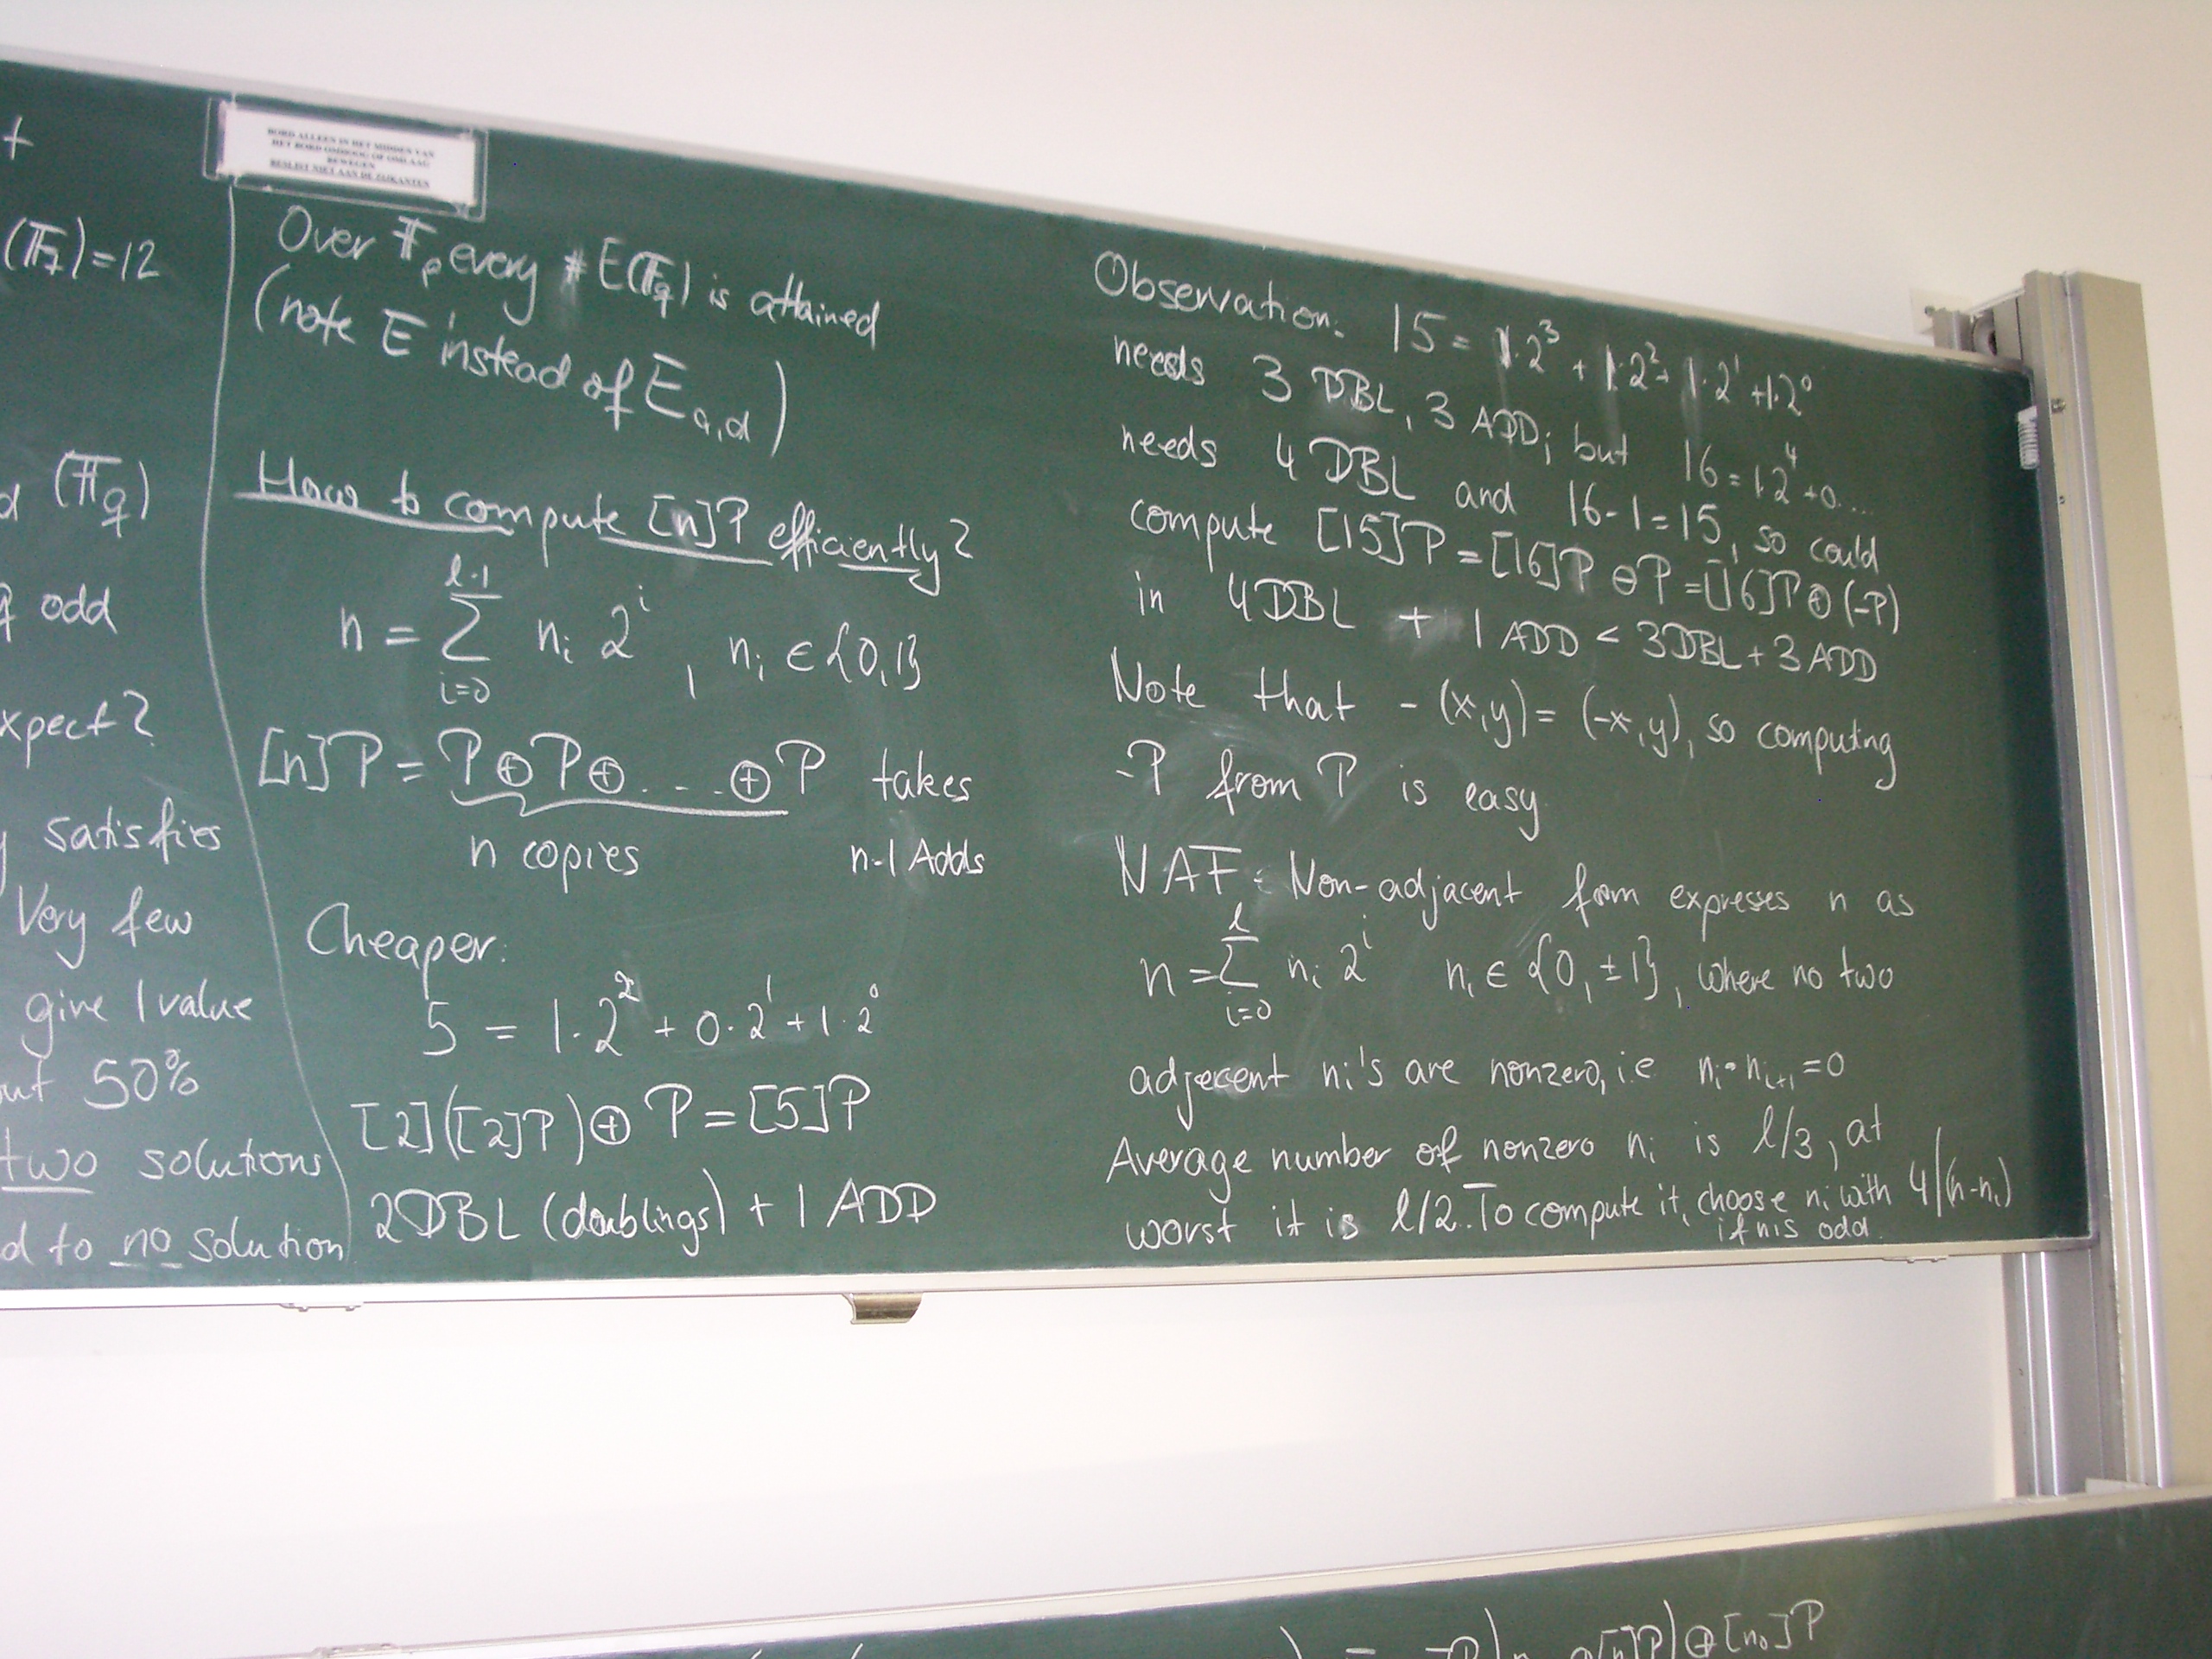 BORD ALLEEN IN HET MIDDEN VAN
HET BORD OMHOOG OF OMLAAG
BEWEGEN
BESLIST NIET AAN DE ZIJKANTEN
+
(F₇)=12
d (F_q)
q odd
xpect?
y satisfies
Very few
give 1 value
out 50%
two solutions
d to no solution
Over F_p every #E(F_q) is attained
(note E instead of E_{a,d})
How to compute [n]P efficiently?
n = ∑_{i=0}^{l-1} n_i 2^i , n_i ∈ {0,1}
[n]P = P⊕P⊕...⊕P takes
n copies n-1 Adds
Cheaper:
5 = 1·2² + 0·2¹ + 1·2⁰
[2]([2]P)⊕P=[5]P
2DBL (doublings) + 1 ADD
Observation: 15 = 1·2³ + 1·2² + 1·2¹ + 1·2⁰
needs 3 DBL, 3 ADD; but 16 = 1·2⁴+0....
needs 4 DBL and 16-1=15, so could
compute [15]P = [16]P ⊖ P = [16]P ⊕ (-P)
in 4DBL + 1 ADD < 3DBL + 3 ADD
Note that -(x,y) = (-x,y), so computing
-P from P is easy.
NAF: Non-adjacent form expresses n as
n = ∑_{i=0}^{l} n_i 2^i n_i ∈ {0, ±1}, where no two
adjecent n_i's are nonzero, i.e n_i·n_{i+1}=0
Average number of nonzero n_i is l/3, at
worst it is l/2. To compute it, choose n_i with 4|(n-n_i)
if n is odd.
[n]P)⊕[n₀]P